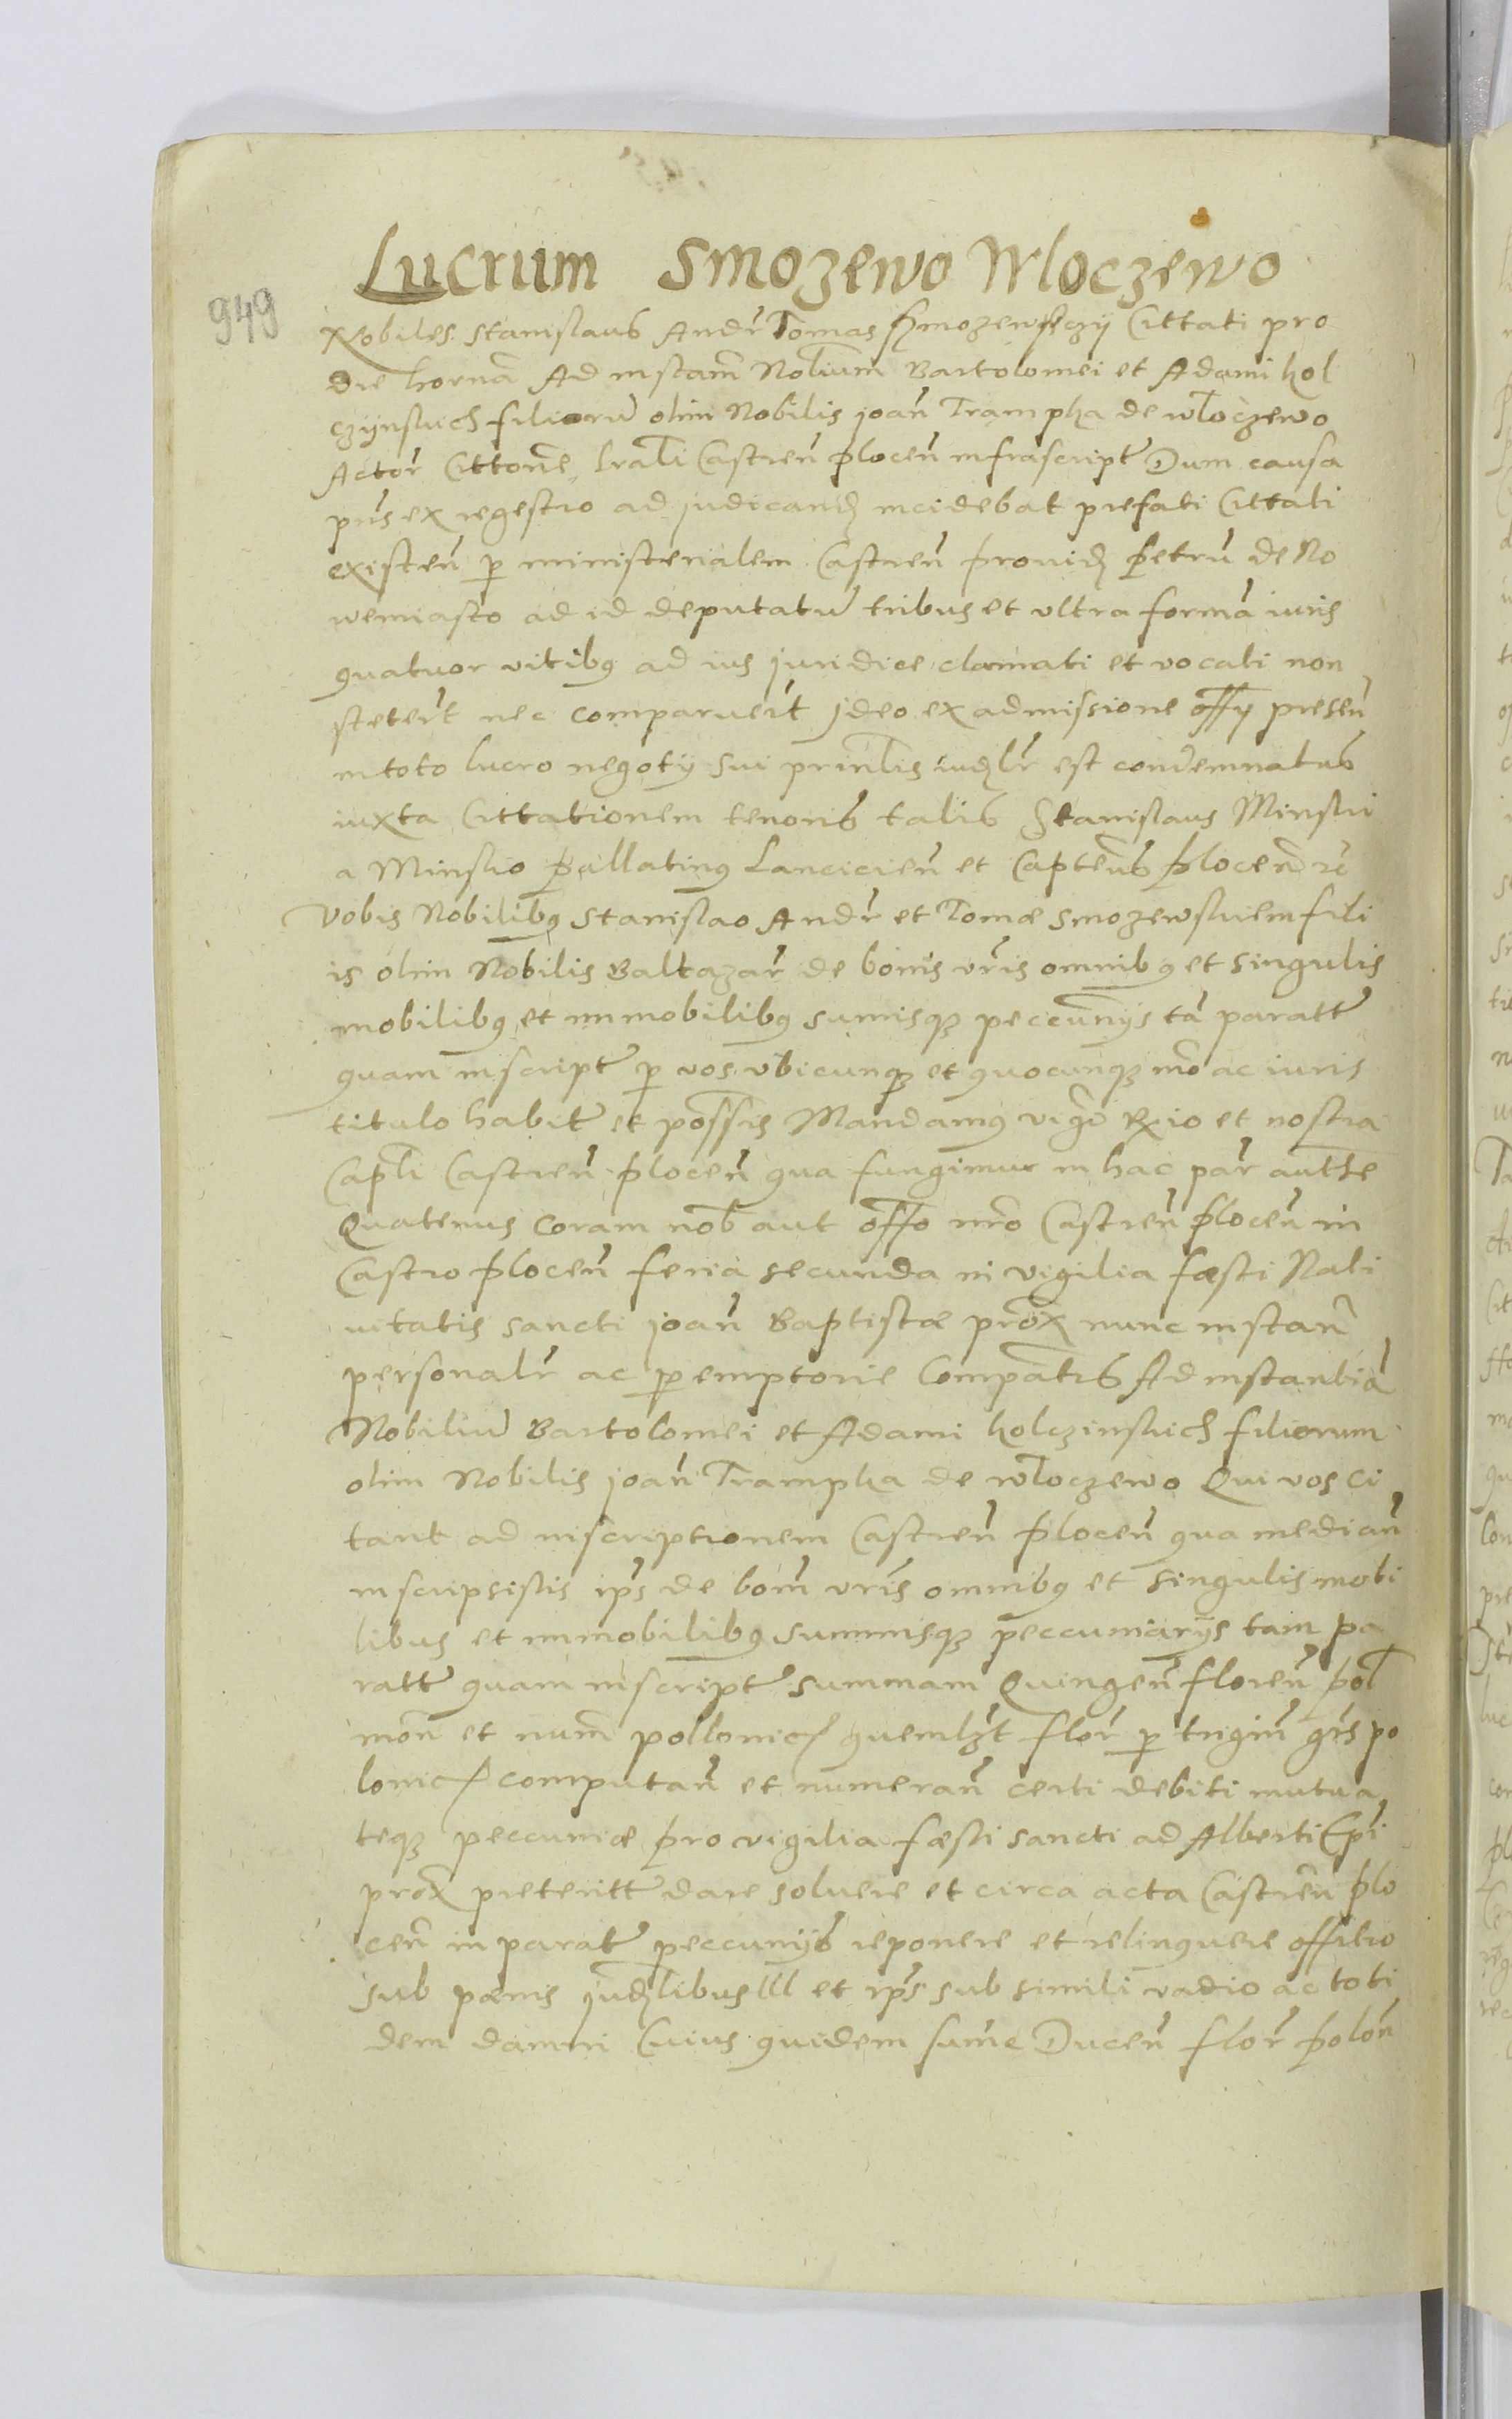 Lucrum Smozewo Wloczewo
949
Nobiles Stanislaus Andr Tomas Smozewsczÿ Cittati pro
die horna Ad instam Nobilium Bartolomei et Adami kol
czÿnskich filioru olim Nobilis joan Trampka de wloczewo
Actor Cittone lrali Castren plocen infrascript Dum causa
pns ex regestro ad judicand incidebat prefati Cittati
existen p ministerialem Castren prouid petru de No
wemiasto ad id deputatu tribus et vltra forma iuris
quatuor vitibq ad ius juridice clamati et vocati non
stetert nec comparuert jdeo ex admissione offÿ presen
in toto lucro negotÿ sui prinlis iudlr est condemnatus
iuxta Cittationem tenoris talis Stanislaus Minski
a Minsko pallatinq Lancicien et Captens plocen rc
Vobis Nobilibq Stanislao Andr et Tomæ Smozewskiem fili
is olim Nobilis Baltazar de bonis vris omnibq et singulis
mobilibq et immobilibq sumisqz peccunÿs ta paratt
quam inscript p vos vbicunqz et quocunqz mo ac iuris
titulo habit et possis Mandamq vigr Rgio et nostra
Capli Castren plocen qua fungimur in hac par authe
Quatenus coram nob aut offo nro Castren plocen in
Castro plocen feria secunda in vigilia fæsti Nati
uitatis sancti joan Baptistæ prox nunc instan
personalr ac pemptorie Compatis Ad instantia
Nobiliu Bartolomei et Adami kolczinskich filiorum
olim Nobilis joan Trampka de wloczewo Qui vos ci
tant ad inscriptionem Castren plocen qua median
inscripsistis ips de bom vris omnibq et singulis mobi
libus et immobilibq summisqz peccuniarÿs tam pa
ratt quam inscript summam Quingen floren pol
mon et num pollonic quemlzt flor p trigin grs po
lonic computan et numeran certi debiti mutua
teqz peccuniæ pro vigilia fæsti sancti ad Alberti Epi
prox preteritt dare soluere et circa acta Castren plo
cen in parat peccunÿs reponere et relinquere offitio
sub pænis judlibus lll et ips sub simili vadio ac toti
dem damni Cuius quidem sume Ducen flor polon